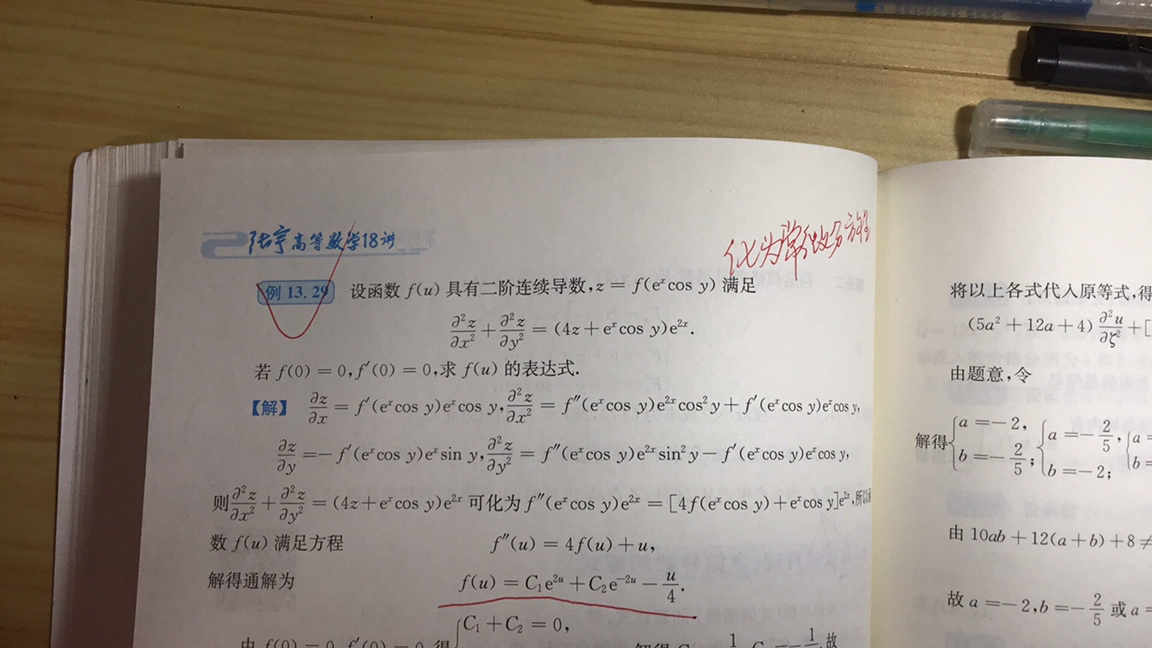 张宇高等数学18讲
化为常微分方程
例 13.29 设函数 f(u) 具有二阶连续导数,z = f(eˣcos y) 满足
∂²z/∂x² + ∂²z/∂y² = (4z + eˣcos y)e²ˣ.
若 f(0) = 0,f′(0) = 0,求 f(u) 的表达式.
【解】 ∂z/∂x = f′(eˣcos y)eˣcos y, ∂²z/∂x² = f″(eˣcos y)e²ˣcos²y + f′(eˣcos y)eˣcos y,
∂z/∂y = − f′(eˣcos y)eˣsin y, ∂²z/∂y² = f″(eˣcos y)e²ˣsin²y − f′(eˣcos y)eˣcos y,
则 ∂²z/∂x² + ∂²z/∂y² = (4z + eˣcos y)e²ˣ 可化为 f″(eˣcos y)e²ˣ = [4f(eˣcos y) + eˣcos y]e²ˣ,所以
数 f(u) 满足方程 f″(u) = 4f(u) + u,
解得通解为 f(u) = C₁e²ᵘ + C₂e⁻²ᵘ − u/4.
由 f(0) = 0, f′(0) = 0, 得 { C₁ + C₂ = 0,
故
将以上各式代入原等式,得
(5a² + 12a + 4) ∂²u/∂ζ² + [
由题意,令
解得 { a = −2, b = − 2/5; { a = − 2/5, b = −2; { a = b =
由 10ab + 12(a + b) + 8 ≠
故 a = −2, b = − 2/5 或 a =